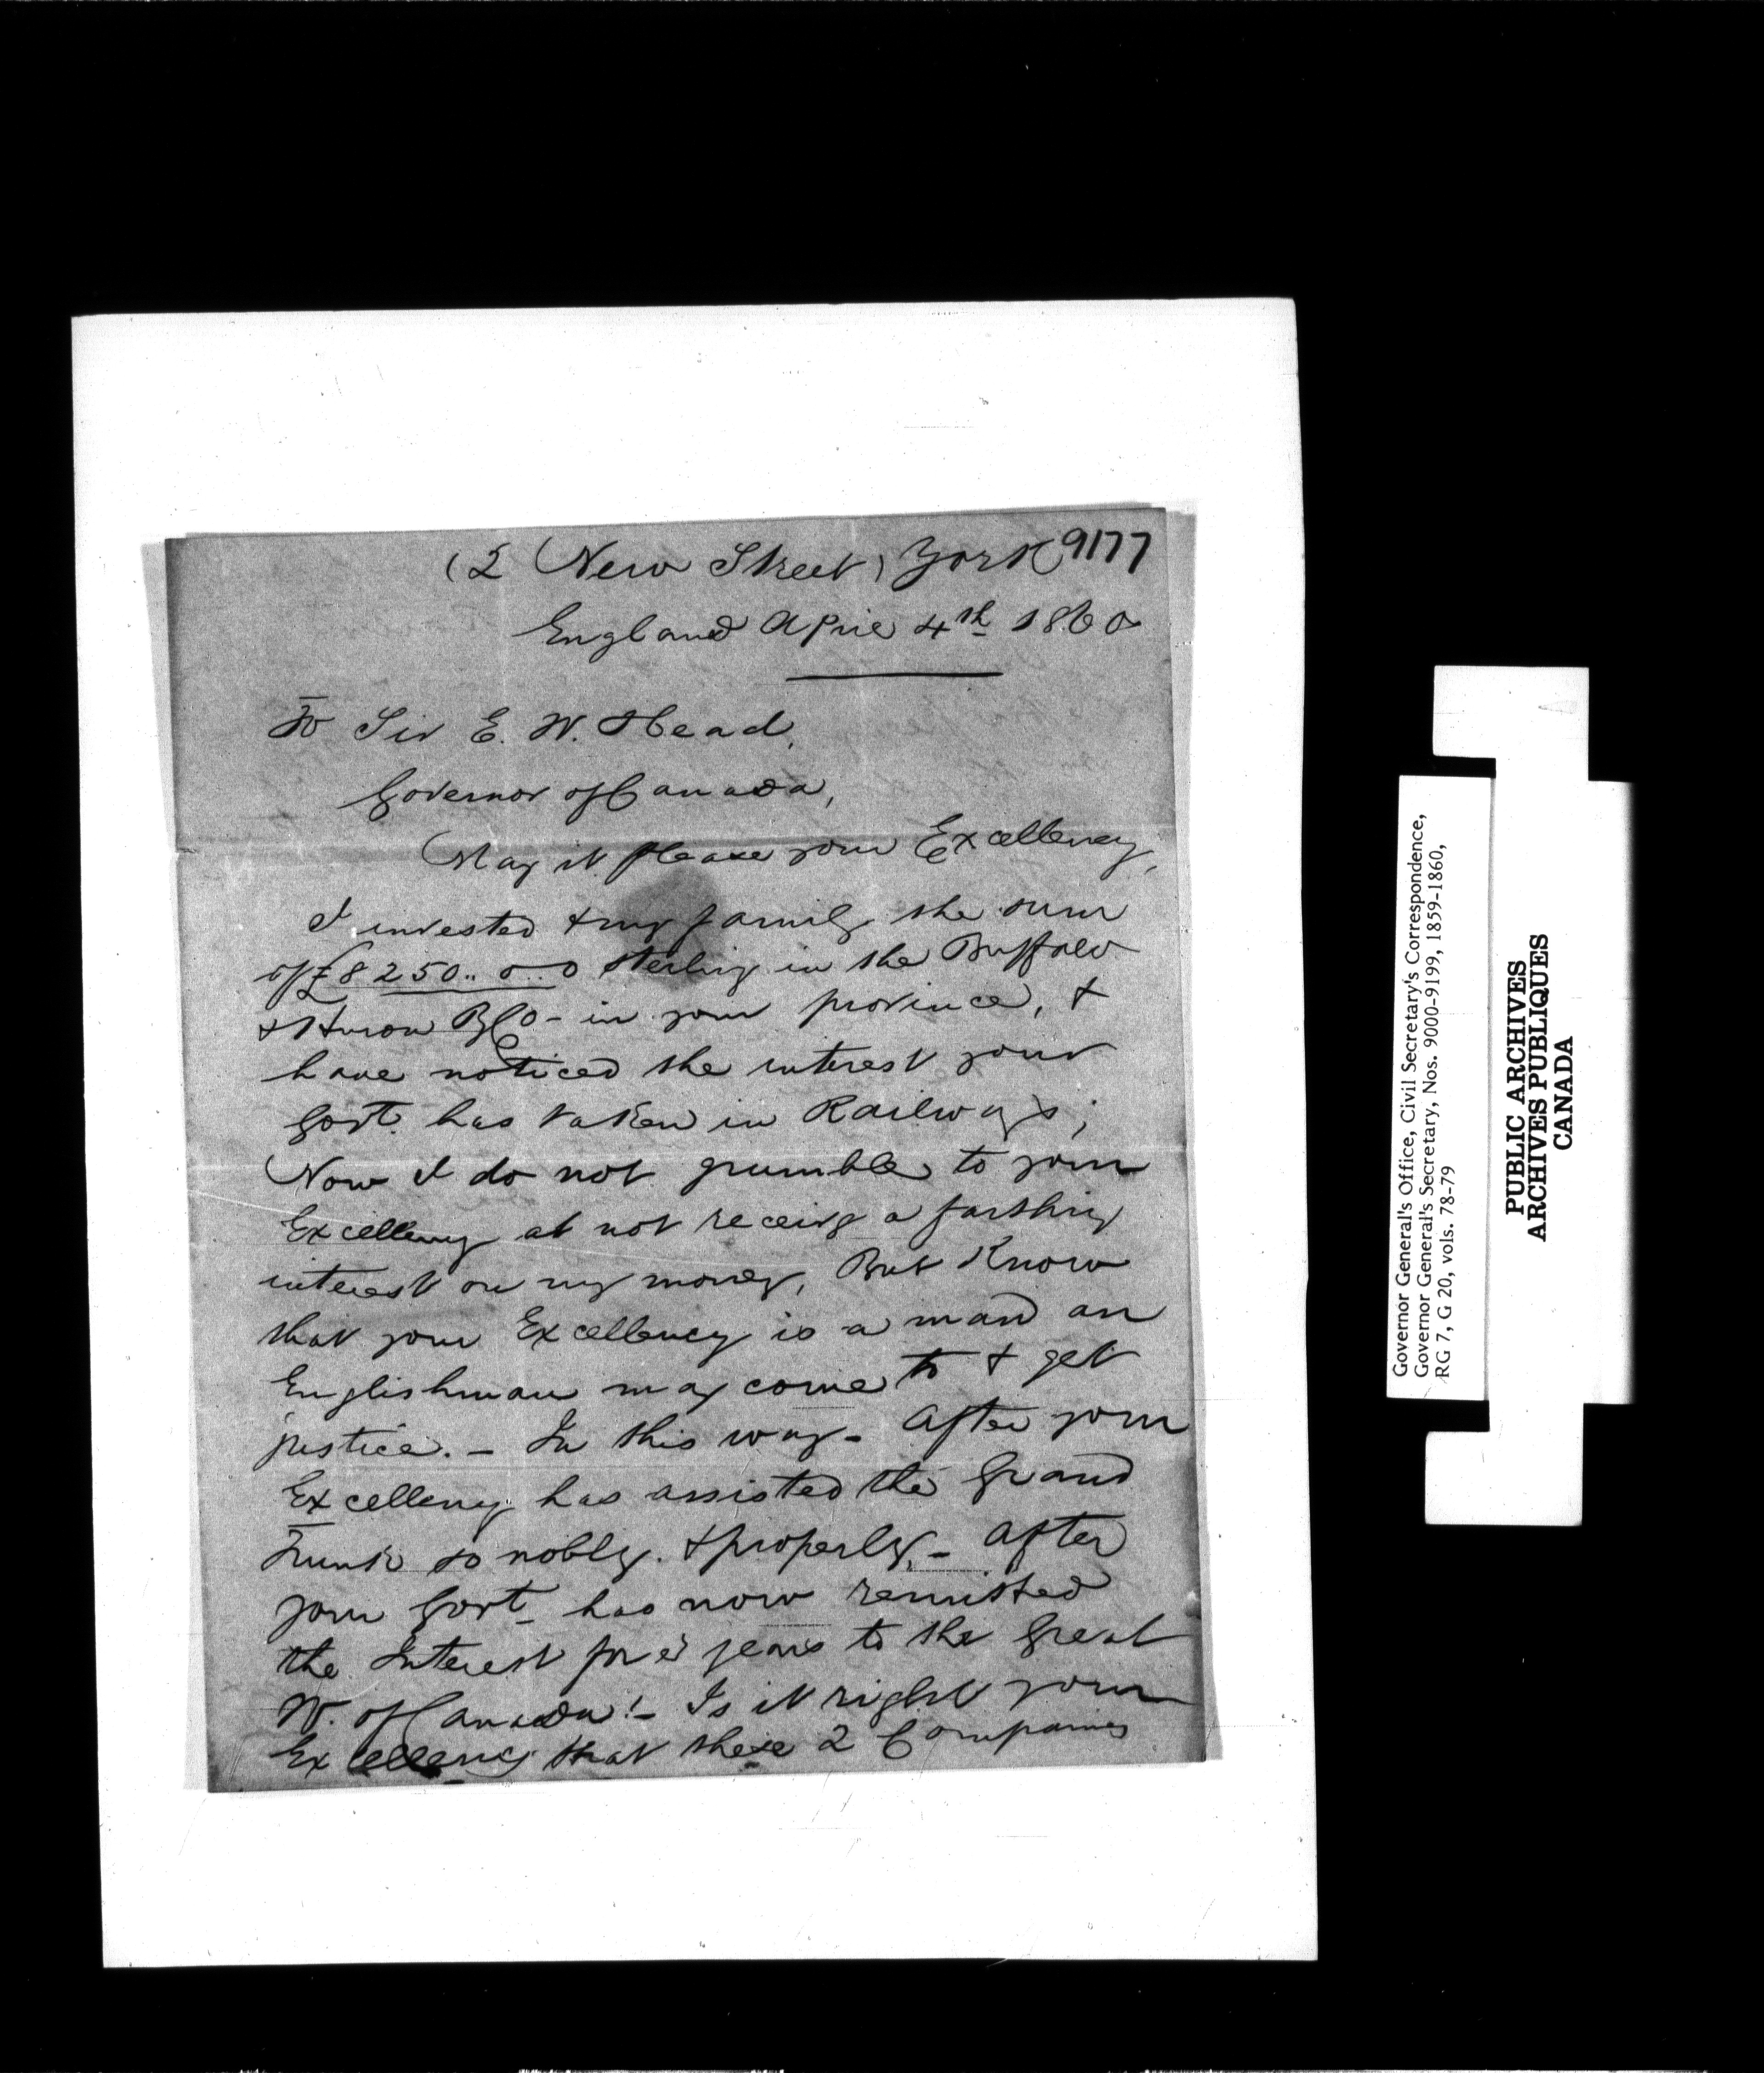 9177
(2 New Street) York
England April 4th 1860
To Sir E. W. Head,
Governor of Canada,
May it please your Excellency,
I invested & my family the sum
of £8250..0..0 sterling in the Buffalo
& Huron RCo - in your province, &
have noticed the interest your
Govt. has taken in Railways;
Now I do not grumble to your
Excellency at not receivg a farthing
interest on my money, But Know
that your Excellency is a man an
Englishman may come to & get
justice. - In this way - After your
Excellency has assisted the Grand
Trunk so nobly. & properly, - After
your Govt - has now remitted
the Interest for years to the Great
W. of Canada! - Is it right your
Excellency that these 2 Companies
Governor General's Office, Civil Secretary's Correspondence,
Governor General's Secretary, Nos. 9000-9199, 1859-1860,
RG 7, G 20, vols. 78-79
PUBLIC ARCHIVES
ARCHIVES PUBLIQUES
CANADA